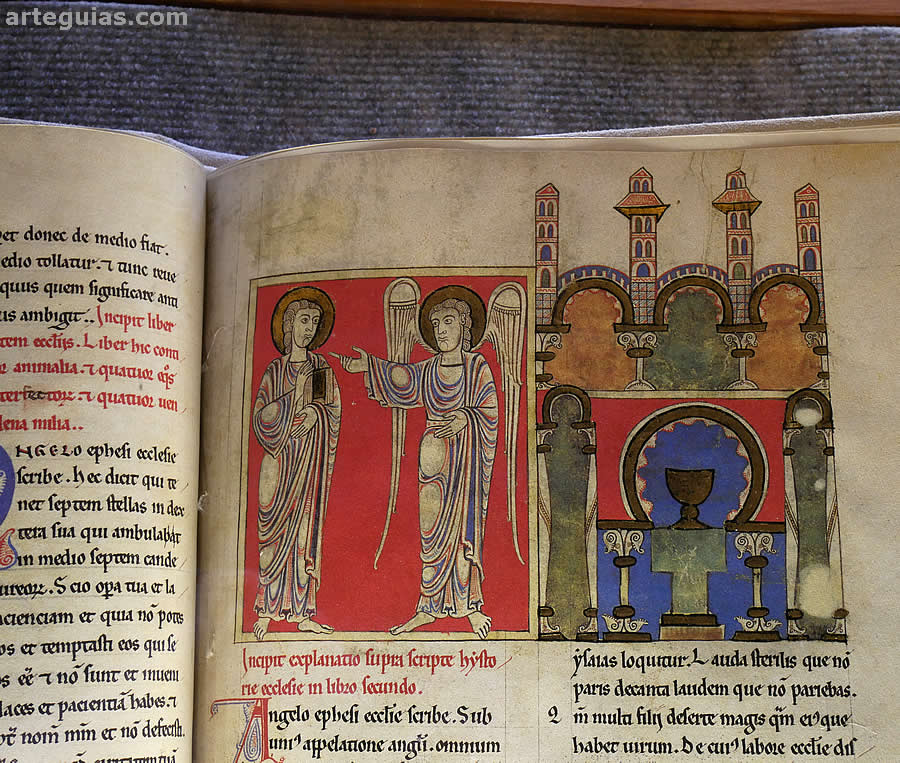 arteguias.com
et donec de medio fiat.
edio tollatur. ⁊ tunc reue
quus quem significare anti
us ambigit.. Incipit liber
tem eccliis. Liber hic conti
animalia. ⁊ quatuor eq̄s
⁊ quatuor uen
milia..
NGELO ephesi ecclesie
scribe. Hec dicit qui te
net septem stellas in dex
tera sua qui ambulabat
in medio septem cande
Scio opa tua et la
pacienciam et quia nō potes
os et temptasti eos qui se
et nō sunt et inueni
et pacientiā habes. ⁊
nomn̄ mm̄ et nō defecisti.
Incipit explanatio supra scripte hysto
rie ecclesie in libro secundo.
Angelo ephesi ecclsie scribe. Sub
appellatione omnium
ysaias loquitur. Lauda sterilis que nō
paris decanta laudem que nō pariebas.
2 multi filij deserte magis qm̄ eiꝰ que
habet uirum. De cuiꝰ labore ecclie dis